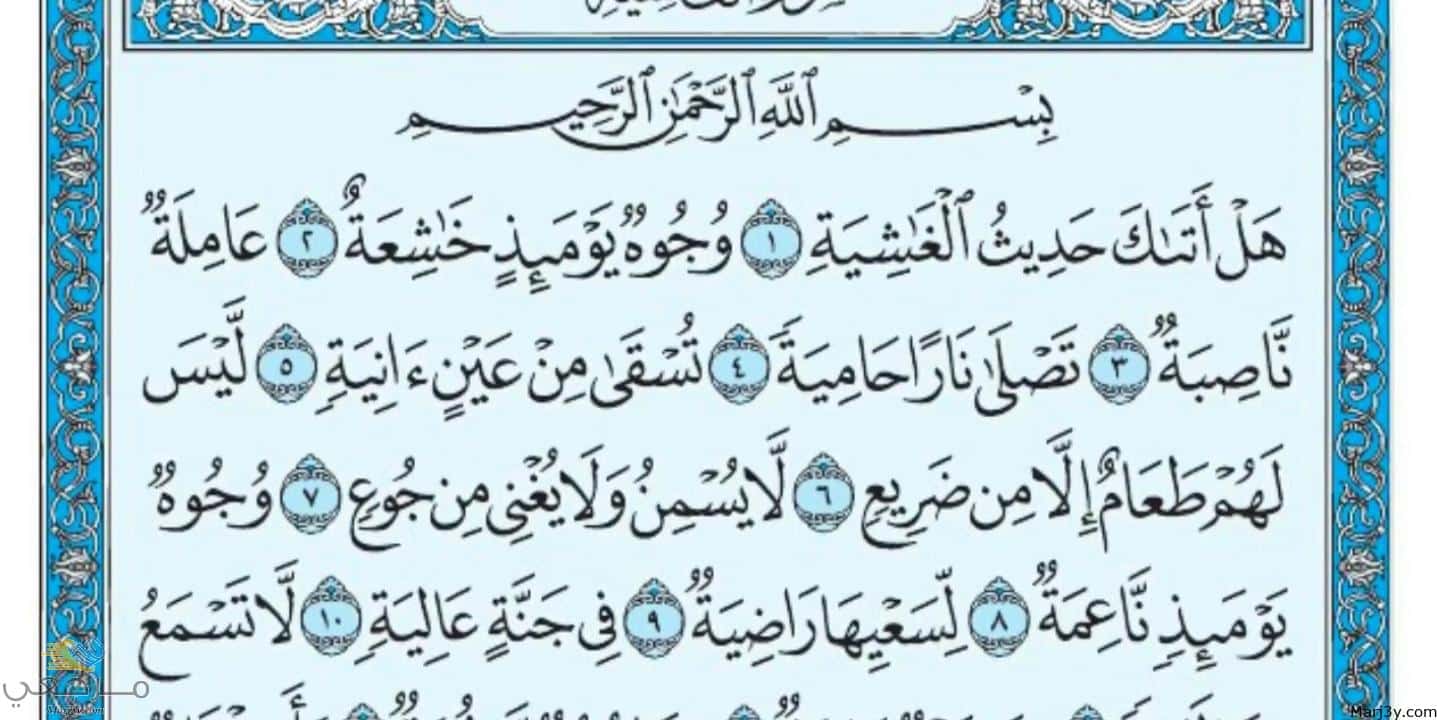 بِسْمِ ٱللَّهِ ٱلرَّحْمَٰنِ ٱلرَّحِيمِ
هَلْ أَتَىٰكَ حَدِيثُ ٱلْغَٰشِيَةِ ١ وُجُوهٌ يَوْمَئِذٍ خَٰشِعَةٌ ٢ عَامِلَةٌ
نَّاصِبَةٌ ٣ تَصْلَىٰ نَارًا حَامِيَةً ٤ تُسْقَىٰ مِنْ عَيْنٍ ءَانِيَةٍ ٥ لَّيْسَ
لَهُمْ طَعَامٌ إِلَّا مِن ضَرِيعٍ ٦ لَّا يُسْمِنُ وَلَا يُغْنِى مِن جُوعٍ ٧ وُجُوهٌ
يَوْمَئِذٍ نَّاعِمَةٌ ٨ لِّسَعْيِهَا رَاضِيَةٌ ٩ فِى جَنَّةٍ عَالِيَةٍ ١٠ لَّا تَسْمَعُ
مرجعي
Marj3y.com